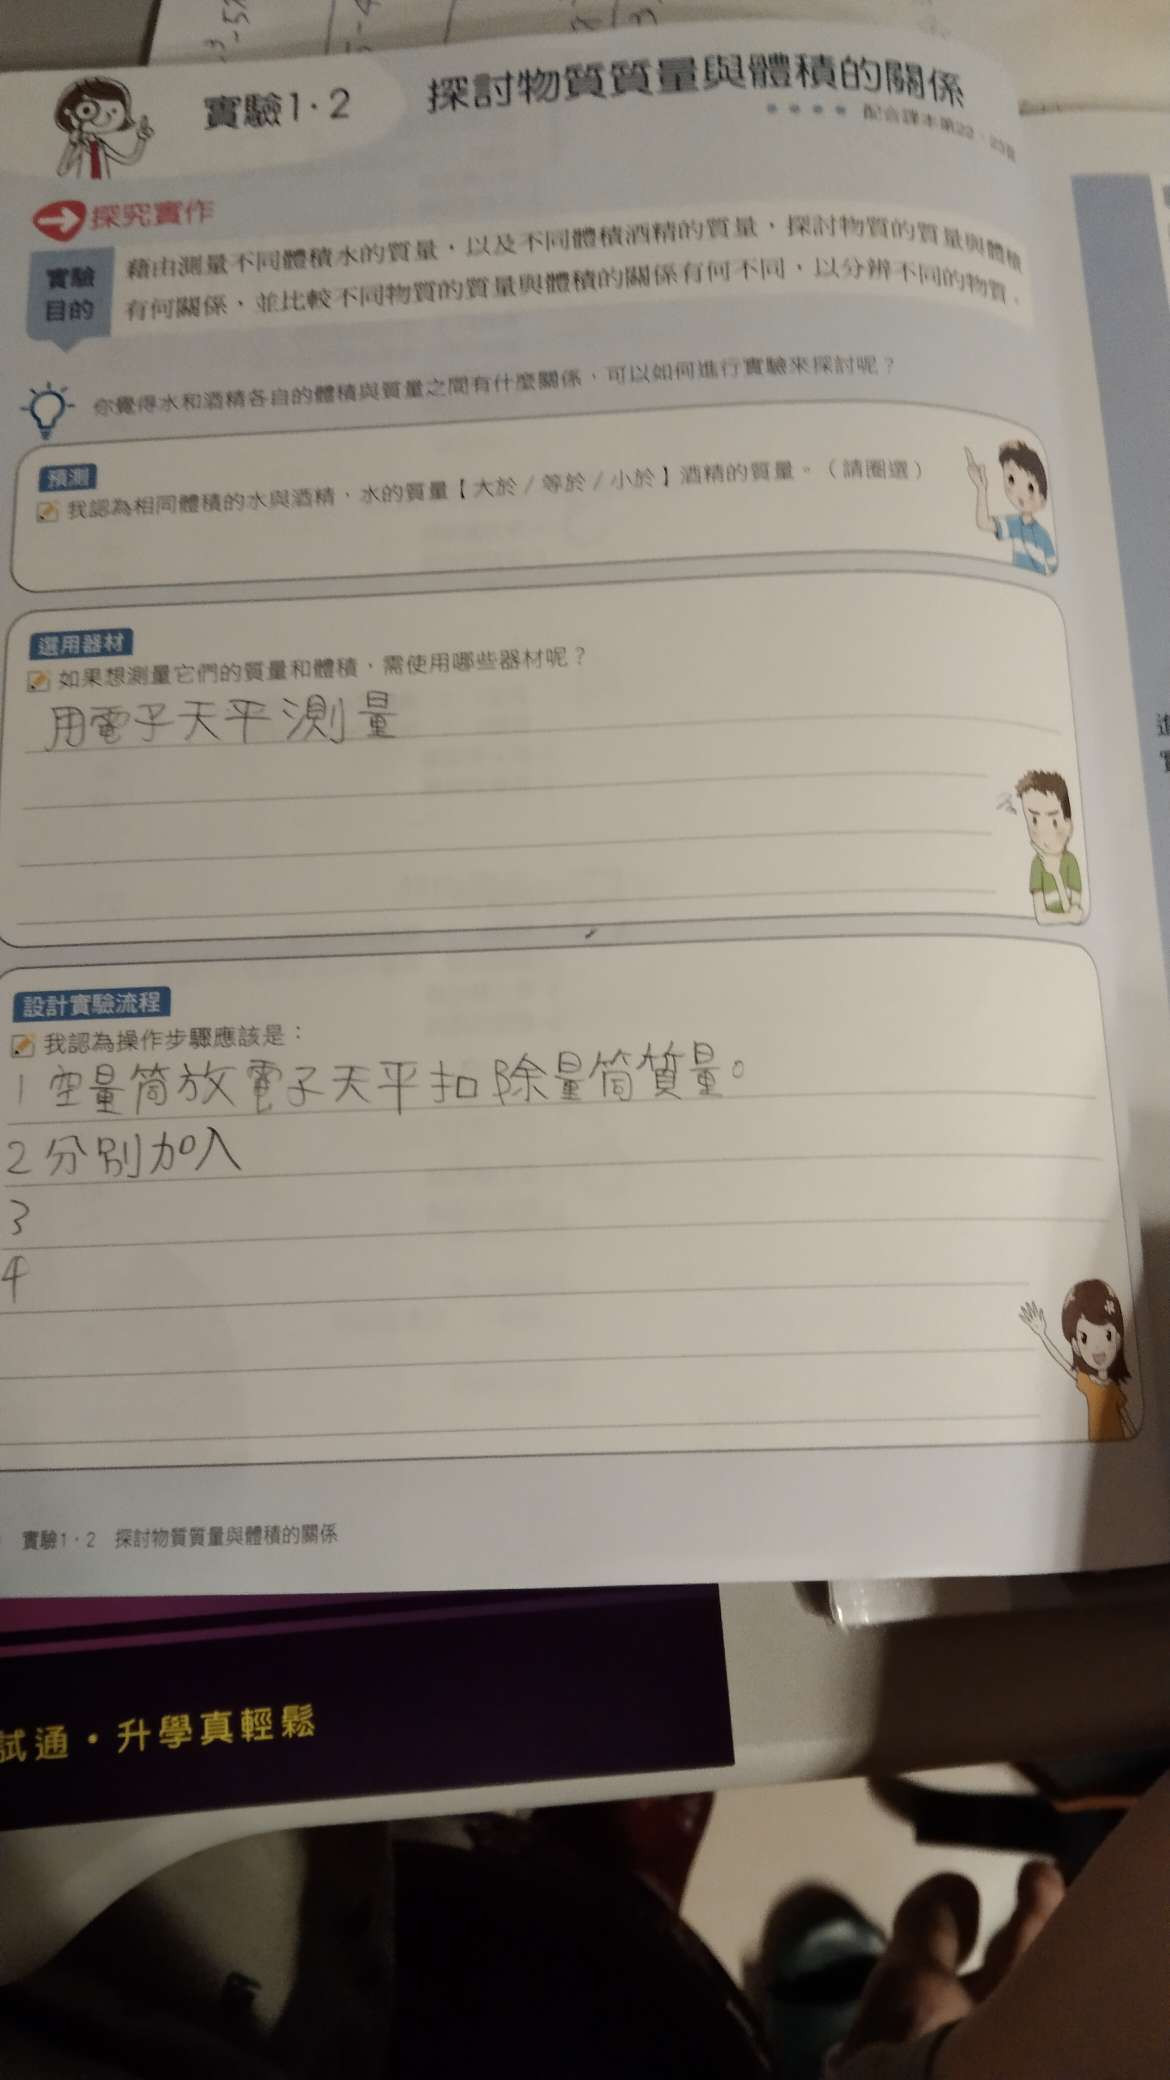 實驗1·2 探討物質質量與體積的關係
配合課本第22、23頁
探究實作
實驗目的
藉由測量不同體積水的質量,以及不同體積酒精的質量,探討物質的質量與體積
有何關係,並比較不同物質的質量與體積的關係有何不同,以分辨不同的物質。
你覺得水和酒精各自的體積與質量之間有什麼關係,可以如何進行實驗來探討呢?
預測
我認為相同體積的水與酒精,水的質量【大於/等於/小於】酒精的質量。(請圈選)
選用器材
如果想測量它們的質量和體積,需使用哪些器材呢?
用電子天平測量
設計實驗流程
我認為操作步驟應該是:
1 空量筒放電子天平扣除量筒質量。
2 分別加入
3
4
實驗1·2 探討物質質量與體積的關係
試通·升學真輕鬆